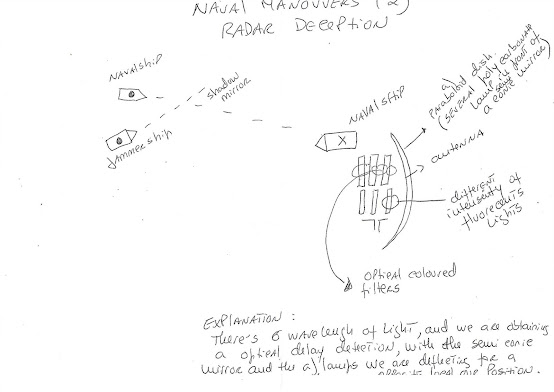 NAVAL MANOUVERS (2)
RADAR DECEPTION
NAVALSHIP
shadow
mirror
JAMMER ship
NAVAL SHIP
a)
PARABOLOID dish
(SEVERAL polycarbonate
lamps in front of
a conic mirror)
antenna
different
intensity of
fluorecents
Lights
optical coloured
filters
EXPLANATION :
There's 6 wavelengh of Light, and we are obtaining
a optical delay detection, with the semi conic
mirror and the a) lamps we are deflecting for a
position.